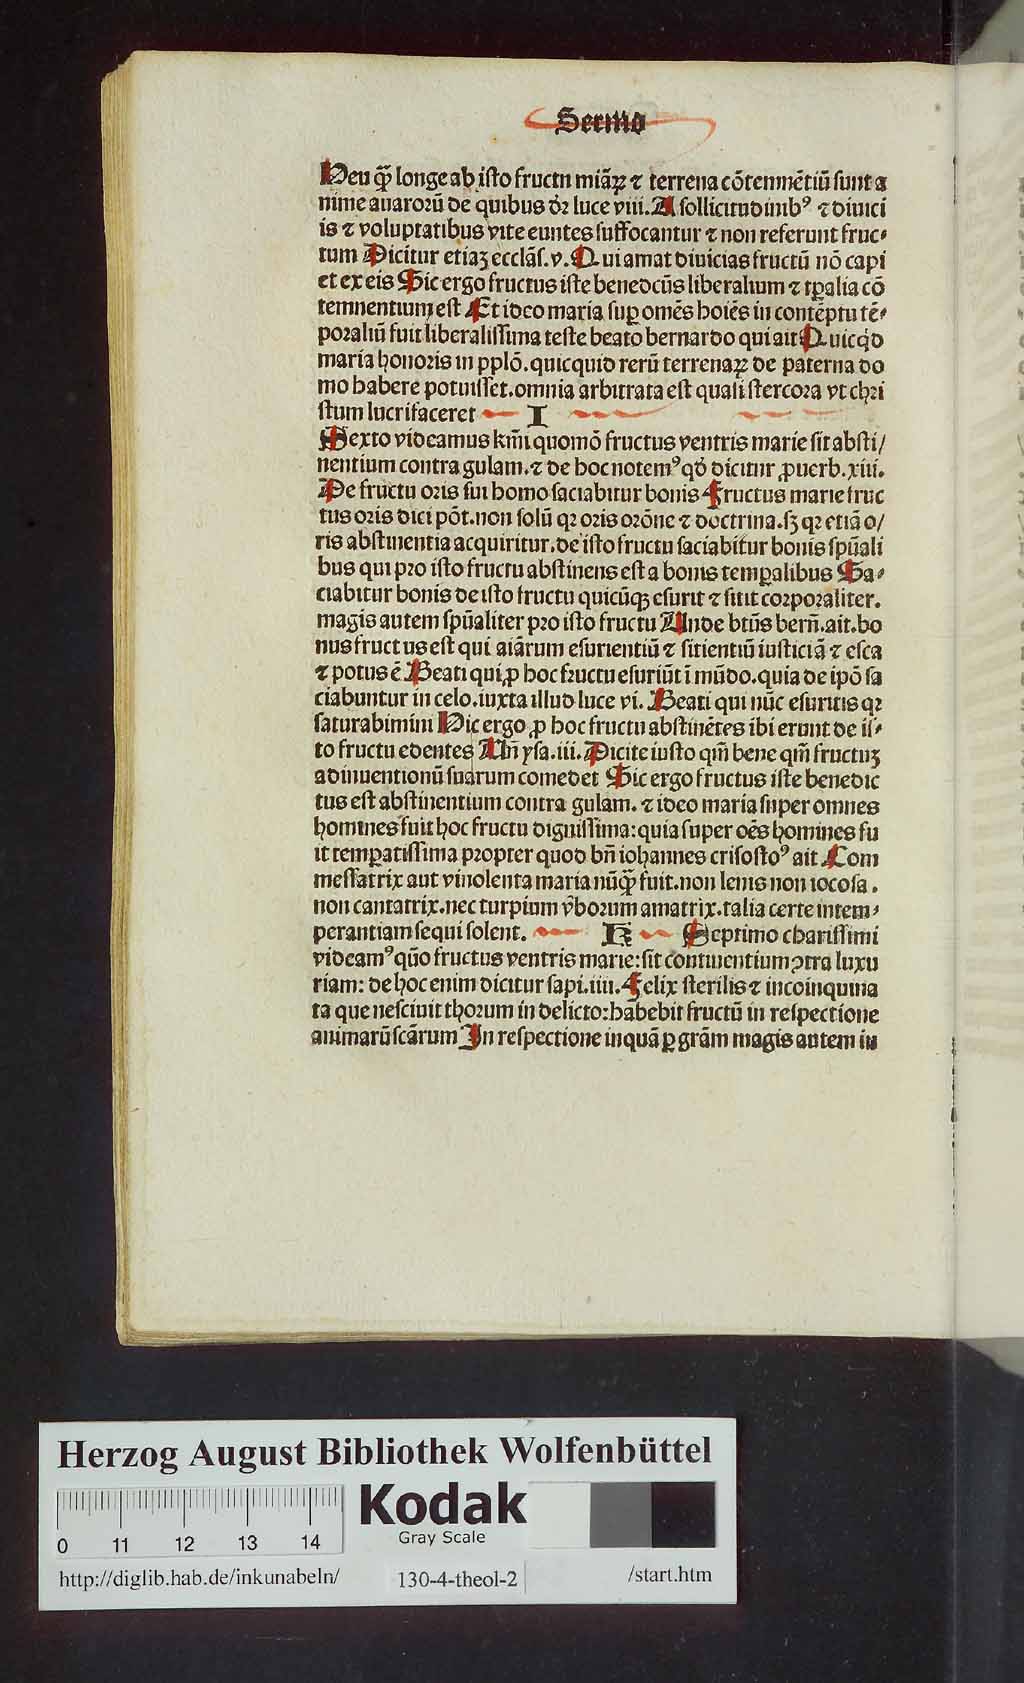 Sermo
Heu qᷓ longe ab isto fructu miāꝝ ⁊ terrena cōtemnētiū sunt a
nime auarorū de quibus dr̄ luce viii. A sollicitudinibꝰ ⁊ diuici
is ⁊ voluptatibus vite euntes suffocantur ⁊ non referunt fruc⸗
tum Dicitur etiaꝫ ecclās. v. Qui amat diuicias fructū nō capi
et ex eis Sic ergo fructus iste benedcūs liberalium ⁊ tꝑalia cō
temnentium est Et ideo maria suꝑ omēs hoiēs in contēptu tē⸗
poraliū fuit liberalissima teste beato bernardo qui ait Quicqd
maria honoris in pplō. quicquid rerū terrenaꝝ de paterna do
mo habere potuisset. omnia arbitrata est quasi stercora vt chri
stum lucrifaceret I
Sexto videamus km̄i quomō fructus ventris marie sit absti/
nentium contra gulam. ⁊ de hoc notemꝰ qd̄ dicitur ꝓuerb. xiii.
De fructu oris sui homo saciabitur bonis Fructus marie fruc
tus oris dici pōt. non solū qꝛ oris orōne ⁊ doctrina. sꝫ qꝛ etiā o/
ris abstinentia acquiritur. de isto fructu saciabitur bonis spūali
bus qui pro isto fructu abstinens est a bonis temꝑalibus Sa⸗
ciabitur bonis de isto fructu quicūqꝫ esurit ⁊ sitit corporaliter.
magis autem spūaliter pro isto fructu Unde btūs bern̄. ait. bo
nus fructus est qui aiārum esurientiū ⁊ sitientiū iusticiā ⁊ esca
⁊ potus ē Beati qui ꝓ hoc fructu esuriūt ī mūdo. quia de ipō sa
ciabuntur in celo. iuxta illud luce vi. Beati qui nūc esuritis qꝛ
saturabimini Hic ergo ꝓ hoc fructu abstinētes ibi erunt de is⸗
to fructu edentes Un̄ ysa. iii. Dicite iusto qm̄ bene qm̄ fructuꝫ
adinuentionū suarum comedet Sic ergo fructus iste benedic
tus est abstinentium contra gulam. ⁊ ideo maria super omnes
homines fuit hoc fructu dignissima: quia super oēs homines fu
it temꝑatissima propter quod bn̄ iohannes crisostoꝰ ait Com
messatrix aut vinolenta maria nūqᷓ fuit. non lenis non iocosa.
non cantatrix. nec turpium v̄borum amatrix. talia certe intem⸗
perantiam sequi solent. K Septimo charissimi
videamꝰ quō fructus ventris marie: sit continentium ꝯtra luxu
riam: de hoc enim dicitur sapi. iiii. Felix sterilis ⁊ incoinquina
ta que nesciuit thorum in delicto: habebit fructū in respectione
animarū scārum In respectione inquā ꝑ grām magis autem in
Herzog August Bibliothek Wolfenbüttel
Kodak
Gray Scale
0 11 12 13 14
http://diglib.hab.de/inkunabeln/ 130-4-theol-2 /start.htm